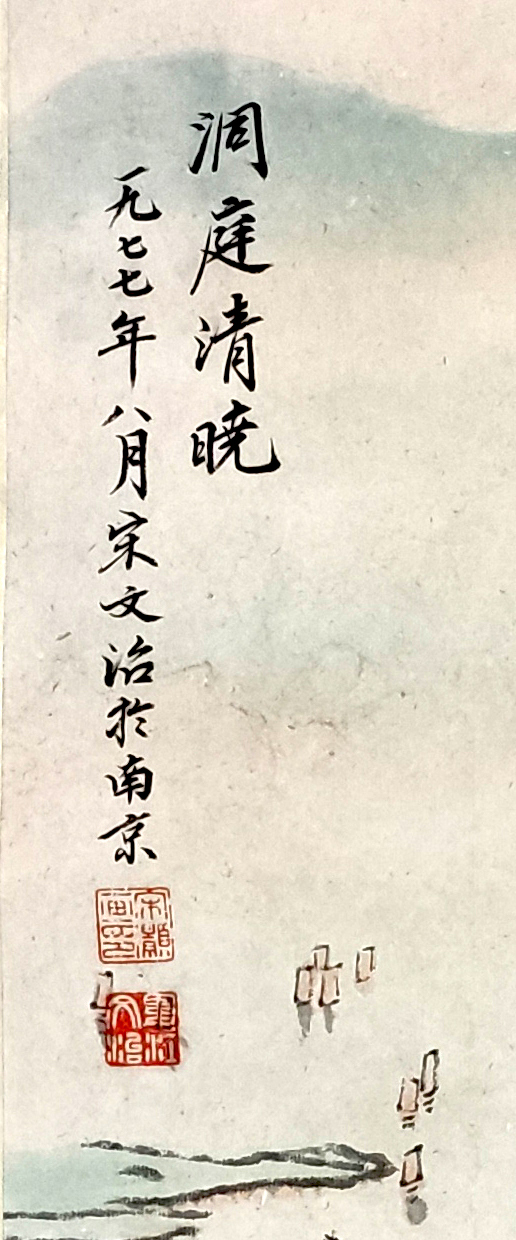 洞庭清晓
一九七七年八月宋文治於南京